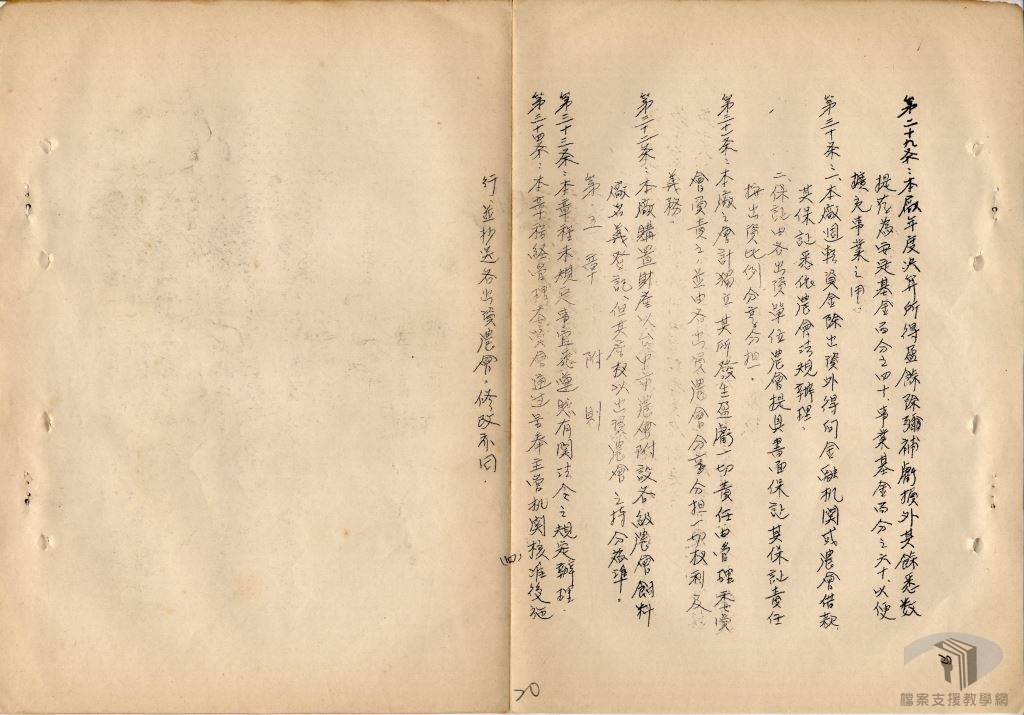 第二十九条：本廠年度決算所得盈餘除彌補虧損外其餘悉数
提存為安定基金百分之四十、事業基金百分之六十、以便
擴充事業之用。
第三十条：一、本廠週轉資金除出資外得向金融机関或農會借款
其保証悉依農會法規辦理。
二、保証由各出資單位農會提具書面保証其保証責任
按出資比例分享分担。
第三十一条：本廠之會計獨立其所發生盈虧一切責任由管理委員
會負責之、並由各出資農會分享分担一切权利及
義務。
第三十二条：本廠購置財產以台中市農會附設各級農會飼料
廠名義登記、但其產权以出資農會之持分為準。
第五章 附則
第三十三条：本章程未規定事宜悉遵照有関法令之規定辦理。
第三十四条：本章程経管理委員會通过呈奉主管机関核准後施
行、並抄送各出資農會。修改亦同。
(四)
20
檔案支援教學網